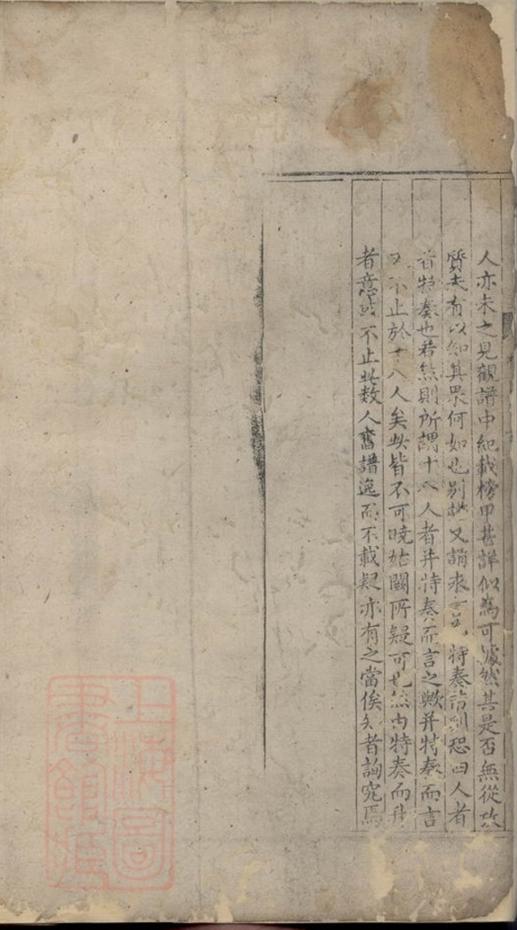 人亦未之見觀譜中紀載榜甲甚詳似為可據然其是否無從攷
質夫有以知其果何如也別此又誦表言特奏恐四人者
皆特奏也若然則所謂十八人者并特奏而言之歟并特奏而言
又不止於十八人矣此皆不可曉姑闕所疑可也然由特奏而升
者意此不止此數人舊譜逸而不載疑亦有之當俟知者詢究焉
上海圖書館藏